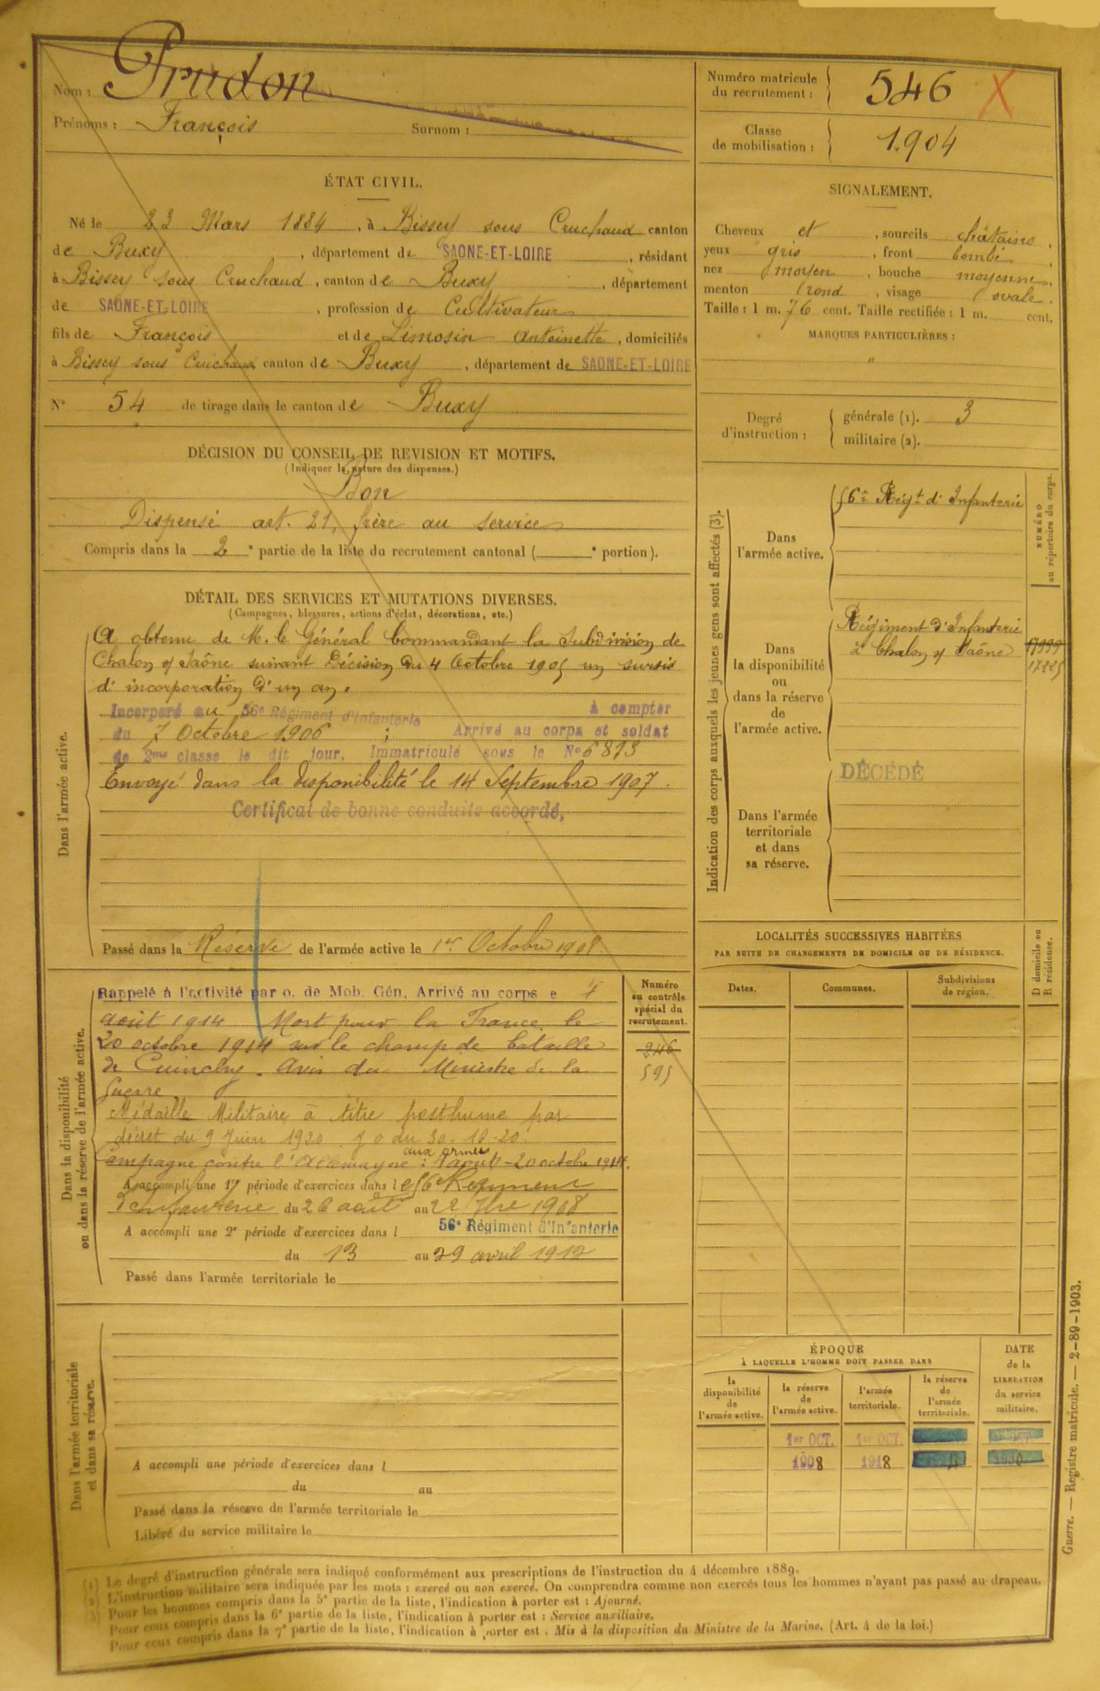 Nom : Prudon
Prénoms : François Surnom :
Numéro matricule du recrutement : 546 X
Classe de mobilisation : 1904
ÉTAT CIVIL.
Né le 23 Mars 1884, à Bissey sous Cruchaud canton
de Buxy, département de SAÔNE-ET-LOIRE, résidant
à Bissey sous Cruchaud, canton de Buxy, département
de SAÔNE-ET-LOIRE, profession de Cultivateur
fils de François et de Limosin Antoinette, domiciliés
à Bissey sous Cruchaud canton de Buxy, département de SAÔNE-ET-LOIRE
N° 54 de tirage dans le canton de Buxy
SIGNALEMENT.
Cheveux et, sourcils châtains,
yeux gris, front bombé,
nez moyen, bouche moyenne,
menton rond, visage ovale.
Taille : 1 m. 76 cent. Taille rectifiée : 1 m. cent.
MARQUES PARTICULIÈRES :
"
Degré d'instruction :
générale (1). 3
militaire (2).
DÉCISION DU CONSEIL DE REVISION ET MOTIFS.
(Indiquer la nature des dispenses.)
Bon
Dispensé art. 21, frère au service
Compris dans la 2e partie de la liste du recrutement cantonal ( e portion).
DÉTAIL DES SERVICES ET MUTATIONS DIVERSES.
(Campagnes, blessures, actions d'éclat, décorations, etc.)
Dans l'armée active.
A obtenu de M. le Général Commandant la Subdivision de
Chalon s/ Saône suivant Décision du 4 Octobre 1905 un sursis
d'incorporation d'un an.
Incorporé au 56e Régiment d'infanterie à compter
du 7 Octobre 1906 ; Arrivé au corps et soldat
de 2me classe le dit jour. Immatriculé sous le N° 6873
Envoyé dans la disponibilité le 14 Septembre 1907.
Certificat de bonne conduite accordé,
Passé dans la Réserve de l'armée active le 1er Octobre 1908.
Dans la disponibilité
ou dans la réserve de l'armée active.
Numéro
au contrôle
spécial du
recrutement.
246
595
Rappelé à l'activité par o. de Mob. Gén. Arrivé au corps e 4
août 1914 Mort pour la France le
20 octobre 1914 sur le champ de bataille
de Cuinchy. Avis du Ministre de la
Guerre
Médaille Militaire à titre posthume par
décret du 9 Juin 1920 J O du 30-10-20.
Campagne contre l'Allemagne : aux armées 4 août - 20 octobre 1914.
A accompli une 1re période d'exercices dans l e 56e Régiment
d'Infanterie du 26 août au 22 7bre 1908
A accompli une 2e période d'exercices dans l 56e Régiment d'Infanterie
du 13 au 29 avril 1912
Passé dans l'armée territoriale le
Dans l'armée territoriale
et dans sa réserve.
A accompli une période d'exercices dans l
du au
Passé dans la réserve de l'armée territoriale le
Libéré du service militaire le
Indication des corps auxquels les jeunes gens sont affectés (3).
NUMÉRO
au répertoire du corps.
Dans
l'armée active.
56e Régt d'Infanterie
Dans
la disponibilité
ou
dans la réserve
de
l'armée active.
Régiment d'Infanterie
à Chalon s/ Saône
DÉCÉDÉ
Dans l'armée
territoriale
et dans
sa réserve.
LOCALITÉS SUCCESSIVES HABITÉES
PAR SUITE DE CHANGEMENTS DE DOMICILE OU DE RÉSIDENCE.
Dates.
Communes.
Subdivisions
de région.
D domicile ou
R résidence.
ÉPOQUE
À LAQUELLE L'HOMME DOIT PASSER DANS
DATE
de la
LIBÉRATION
du service
militaire.
la
disponibilité
de
l'armée active.
la réserve
de
l'armée active.
l'armée
territoriale.
la réserve
de
l'armée
territoriale.
1er OCT. 1er OCT.
1908 1918
Guerre. — Registre matricule. — 2-89-1903.
(1) Le degré d'instruction générale sera indiqué conformément aux prescriptions de l'instruction du 4 décembre 1889.
(2) L'instruction militaire sera indiquée par les mots : exercé ou non exercé. On comprendra comme non exercés tous les hommes n'ayant pas passé au drapeau.
(3) Pour les hommes compris dans la 5e partie de la liste, l'indication à porter est : Ajourné.
Pour ceux compris dans la 6e partie de la liste, l'indication à porter est : Service auxiliaire.
Pour ceux compris dans la 7e partie de la liste, l'indication à porter est : Mis à la disposition du Ministre de la Marine. (Art. 4 de la loi.)